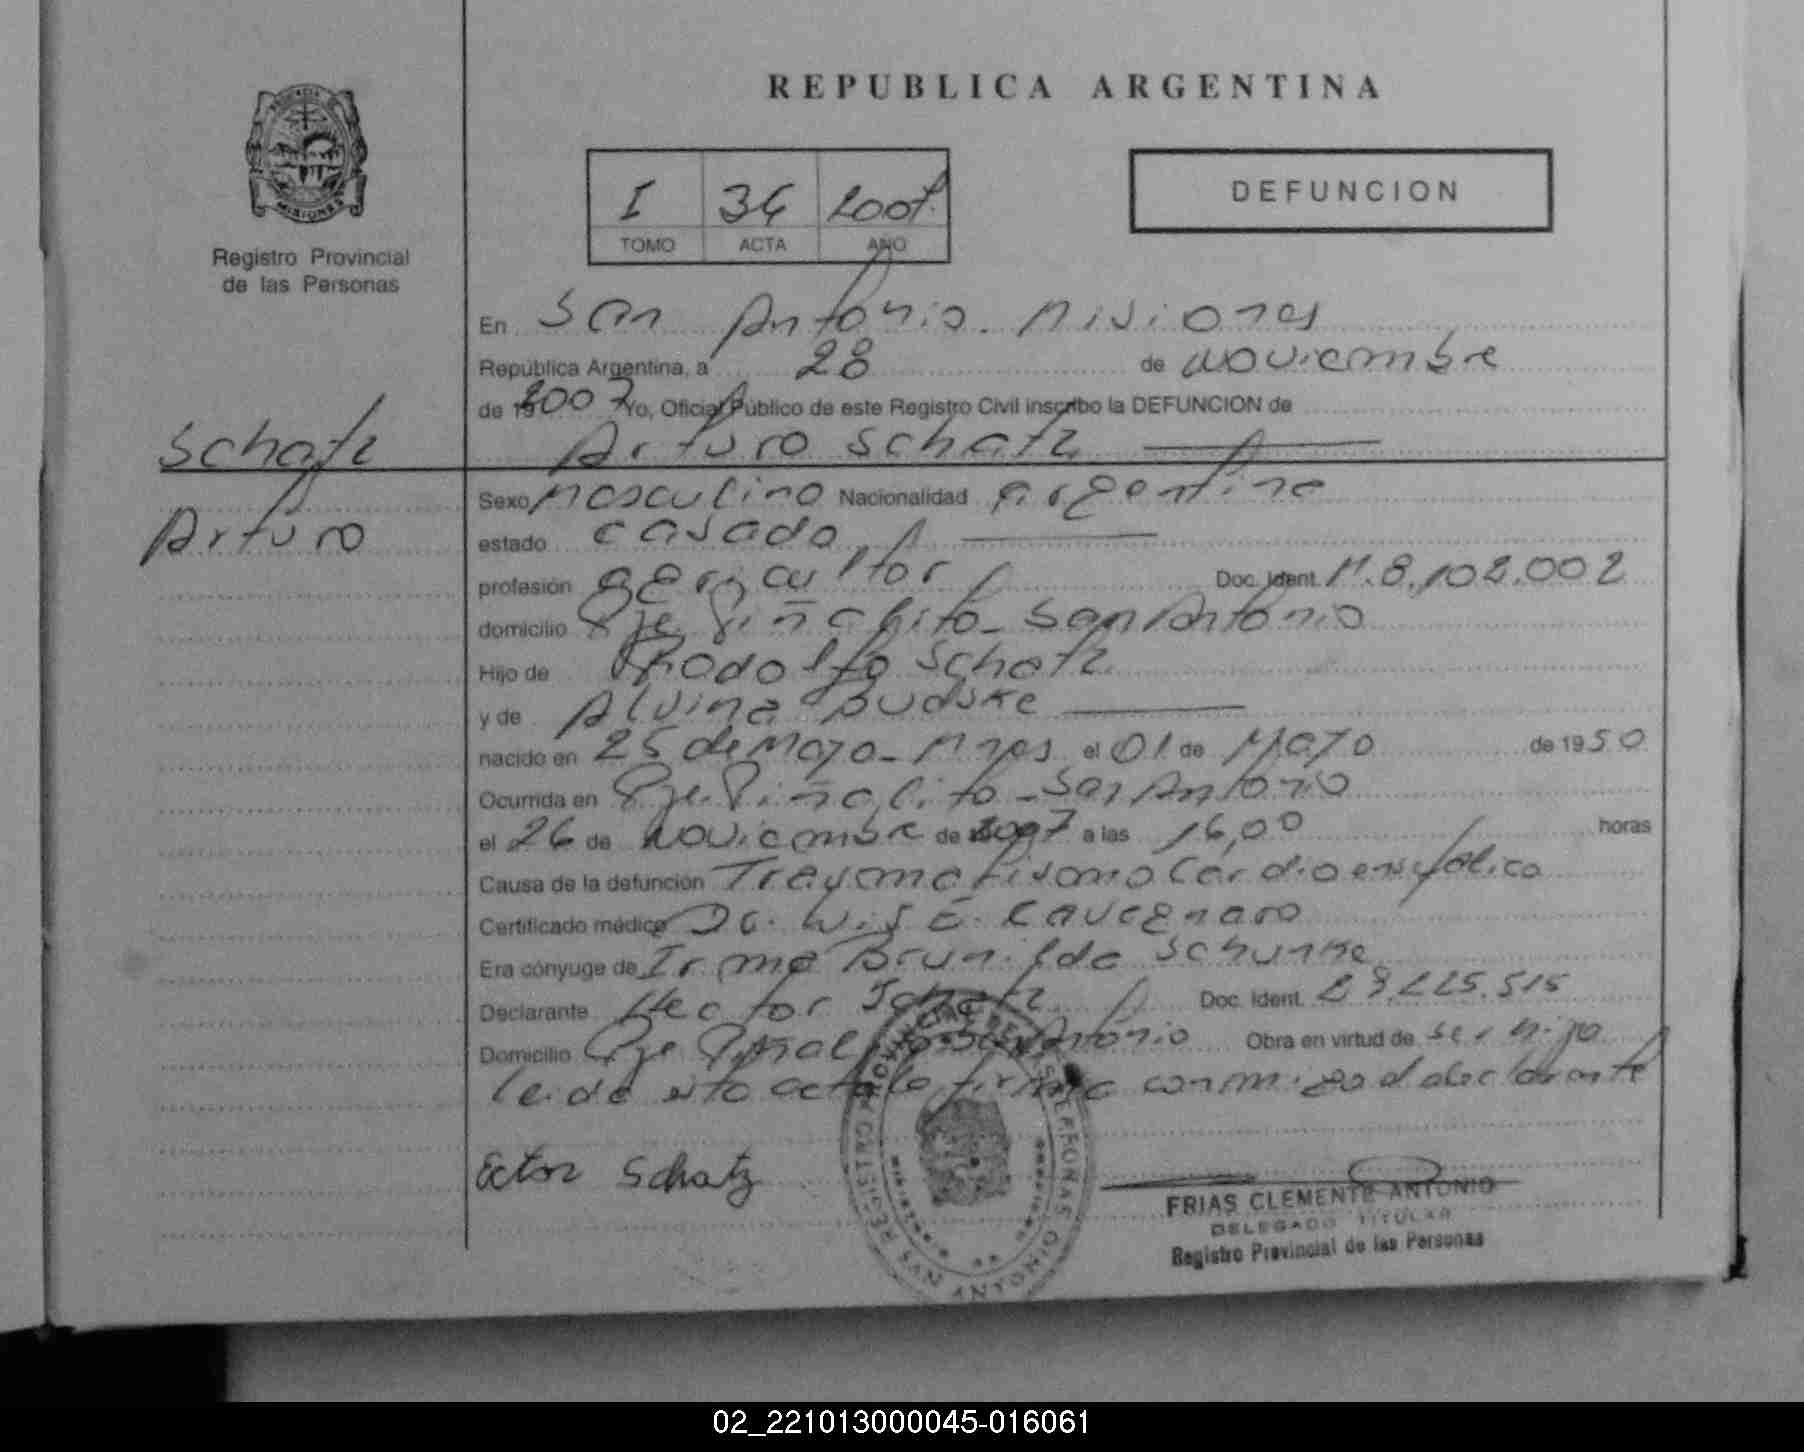 REPUBLICA ARGENTINA
PROVINCIA DE
MISIONES
Registro Provincial
de las Personas
I 34 2007
TOMO ACTA AÑO
DEFUNCION
En San Antonio. Misiones
República Argentina, a 28 de noviembre
de 19 2007 Yo, Oficial Público de este Registro Civil inscribo la DEFUNCION de
Arturo Schatz
Schatz
Arturo
Sexo Masculino Nacionalidad argentina
estado casado
profesión agricultor Doc. Ident. M.8.102.002
domicilio Pje Piñalito - San Antonio
Hijo de Rodolfo Schatz
y de Alvina Buduke
nacido en 25 de Mayo - Mnes el 01 de Mayo de 1950
Ocurrida en Pje. Piñalito - San Antonio
el 26 de noviembre de 2007 a las 16,00 horas
Causa de la defunción
Certificado médico Dr. Luis E. Cavagnaro
Era cónyuge de Irma Brunilda Schunke
Declarante Hector Schatz Doc. Ident. 29.225.515
Domicilio Pje Piñalito San Antonio Obra en virtud de ser hijo
leida esta acta la firma conmigo el declarante
Ector Schatz
REGISTRO PROVINCIAL DE LAS PERSONAS
SAN ANTONIO
MISIONES
FRIAS CLEMENTE ANTONIO
DELEGADO TITULAR
Registro Provincial de las Personas
02_221013000045-016061